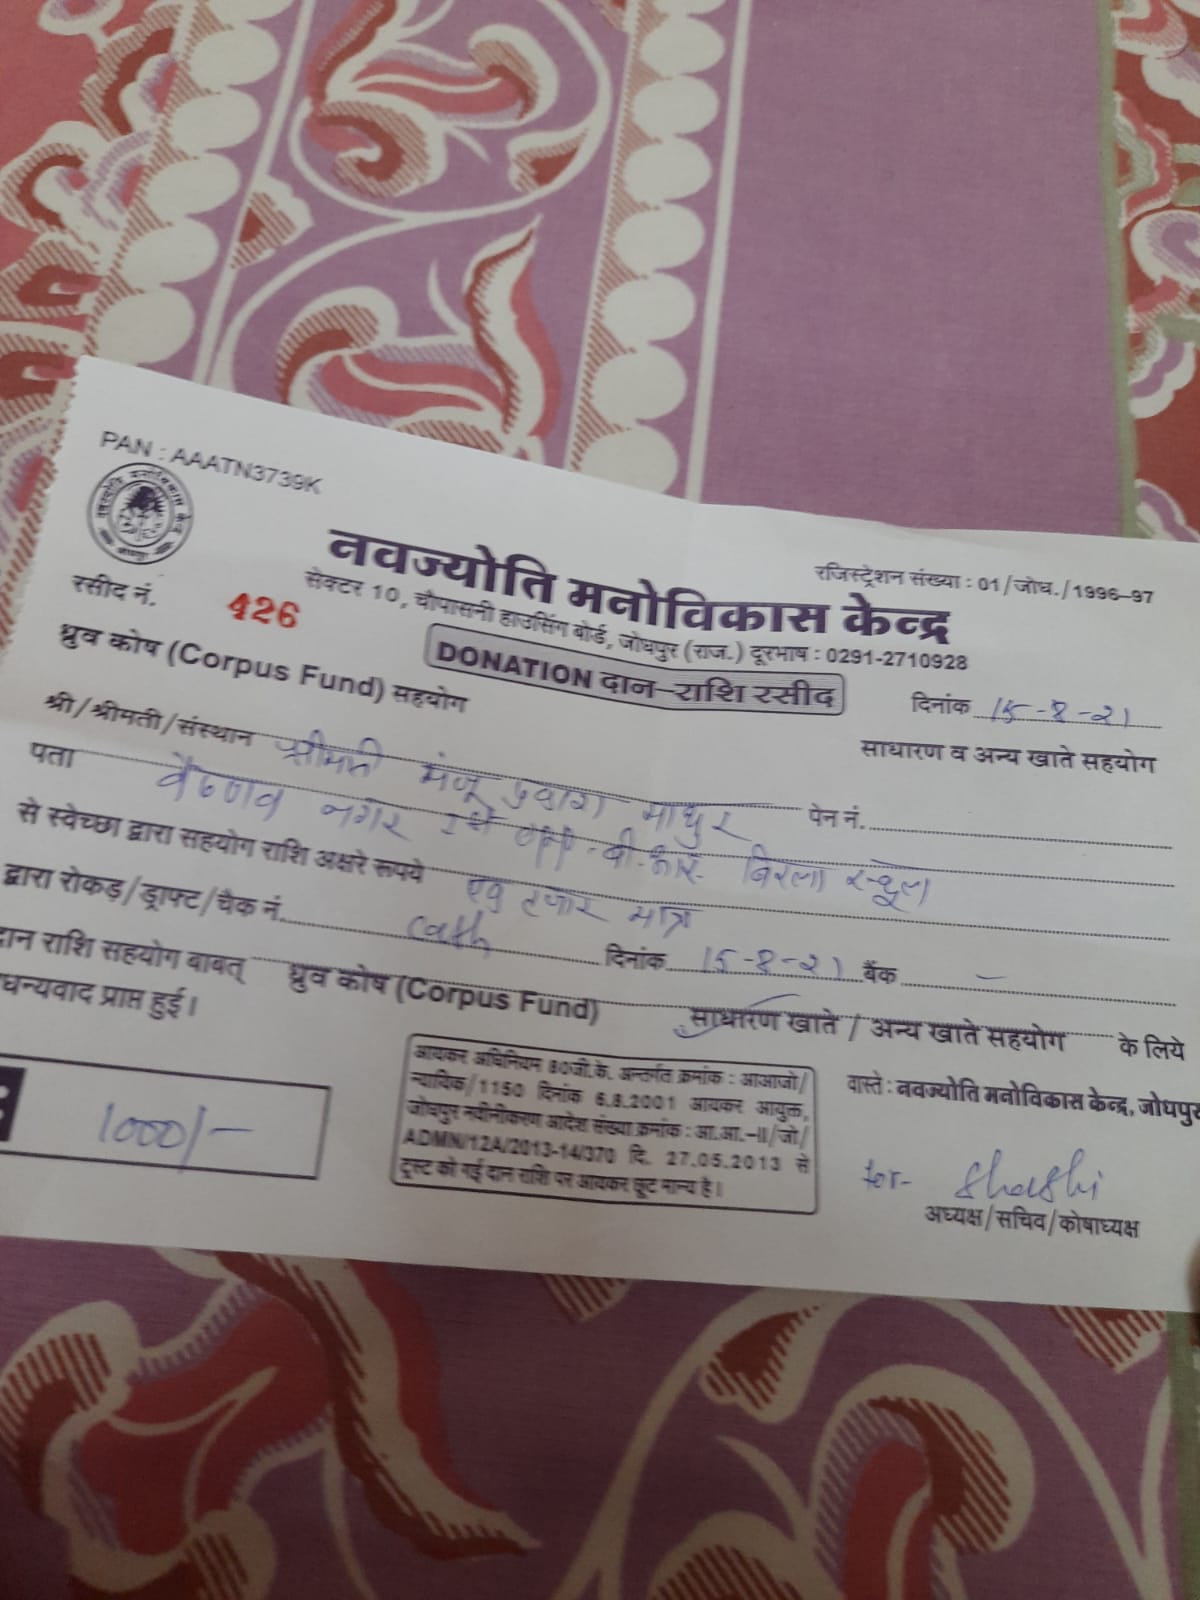 PAN : AAATN3739K
रजिस्ट्रेशन संख्या : 01/जोध./1996–97
नवज्योति मनोविकास केन्द्र
सेक्टर 10, चौपासनी हाउसिंग बोर्ड, जोधपुर (राज.) दूरभाष : 0291-2710928
रसीद नं. 426
DONATION दान–राशि रसीद
दिनांक 15-8-21
ध्रुव कोष (Corpus Fund) सहयोग
साधारण व अन्य खाते सहयोग
श्री/श्रीमती/संस्थान श्रीमती मंजू माथुर पेन नं.
पता वैष्णव नगर बी.आर. बिरला स्कूल
से स्वेच्छा द्वारा सहयोग राशि अक्षरे रूपये एक हजार मात्र
द्वारा रोकड़/ड्राफ्ट/चैक नं. Cash दिनांक 15-8-21 बैंक –
दान राशि सहयोग बाबत् ध्रुव कोष (Corpus Fund) साधारण खाते / अन्य खाते सहयोग के लिये
धन्यवाद प्राप्त हुई।
1000/–
आयकर अधिनियम 80जी.के. अन्तर्गत क्रमांक : आआजो/
न्यायिक/1150 दिनांक 6.8.2001 आयकर आयुक्त,
जोधपुर नवीनीकरण आदेश संख्या क्रमांक : आ.आ.–II/जो/
ADMN/12A/2013-14/370 दि. 27.05.2013 से
ट्रस्ट को गई दान राशि पर आयकर छूट मान्य है।
वास्ते : नवज्योति मनोविकास केन्द्र, जोधपुर
for- Shashi
अध्यक्ष/सचिव/कोषाध्यक्ष